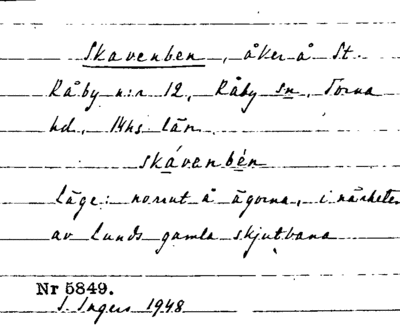 Skavenben, åker å St.
Råby n:r 12, Råby sn, Torna
hd., Mhs län.
skávenbén
Läge: norrut å ägorna, i närheten
av Lunds gamla skjutbana
Nr 5849.
I. Ingers 1948